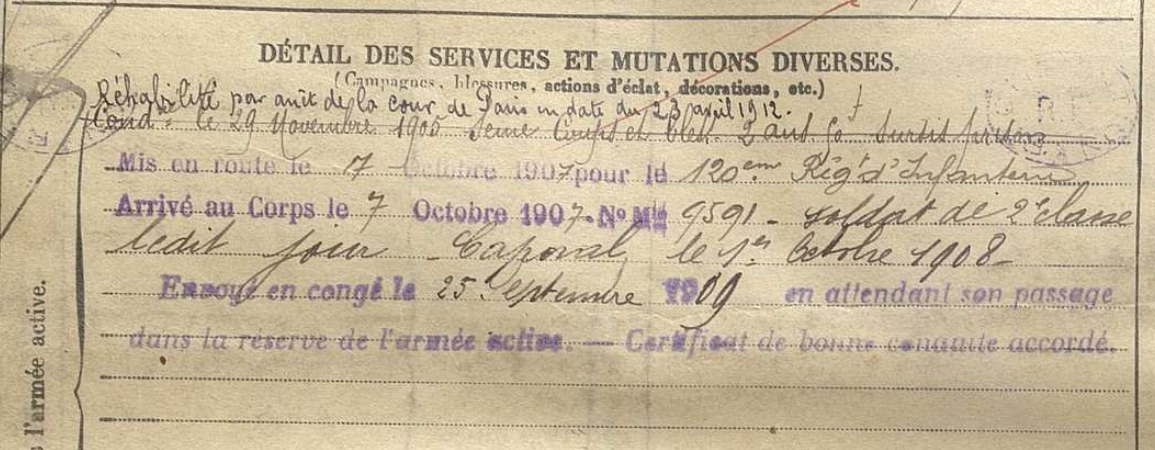 DÉTAIL DES SERVICES ET MUTATIONS DIVERSES.
(Campagnes, blessures, actions d'éclat, décorations, etc.)
Réhabilité par arrêt de la cour de Paris en date du 23 avril 1912.
Condé le 29 Novembre 1905 Seine Coups et bles. 2 ans sursis prison
Mis en route le 7 Octobre 1907 pour le 120em Rég d'Infanterie
Arrivé au Corps le 7 Octobre 1907. No Mle 9591 - soldat de 2e classe
ledit jour - Caporal le 1er Octobre 1908
Envoyé en congé le 25 Septembre 1909 en attendant son passage
dans la réserve de l'armée active. — Certificat de bonne conduite accordé.
l'armée active.